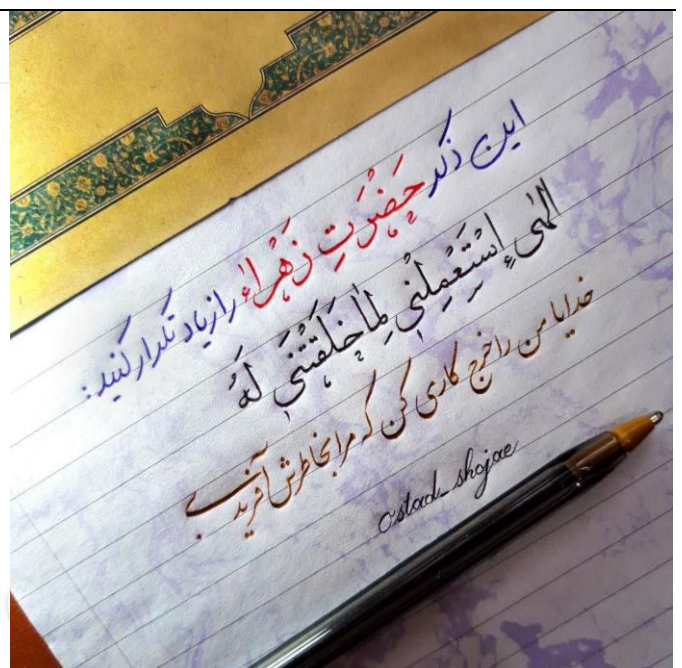 این ذکر حَضْرَتِ زَهْراء را زیاد تکرار کنید:
الهیٰ إِسْتَعْمِلْنیٖ لِمٰا خَلَقْتَنیٖ لَهُ
خدایا من را خرج کاری کن که مرا بخاطرش آفریده‌ای
ostad_shojae